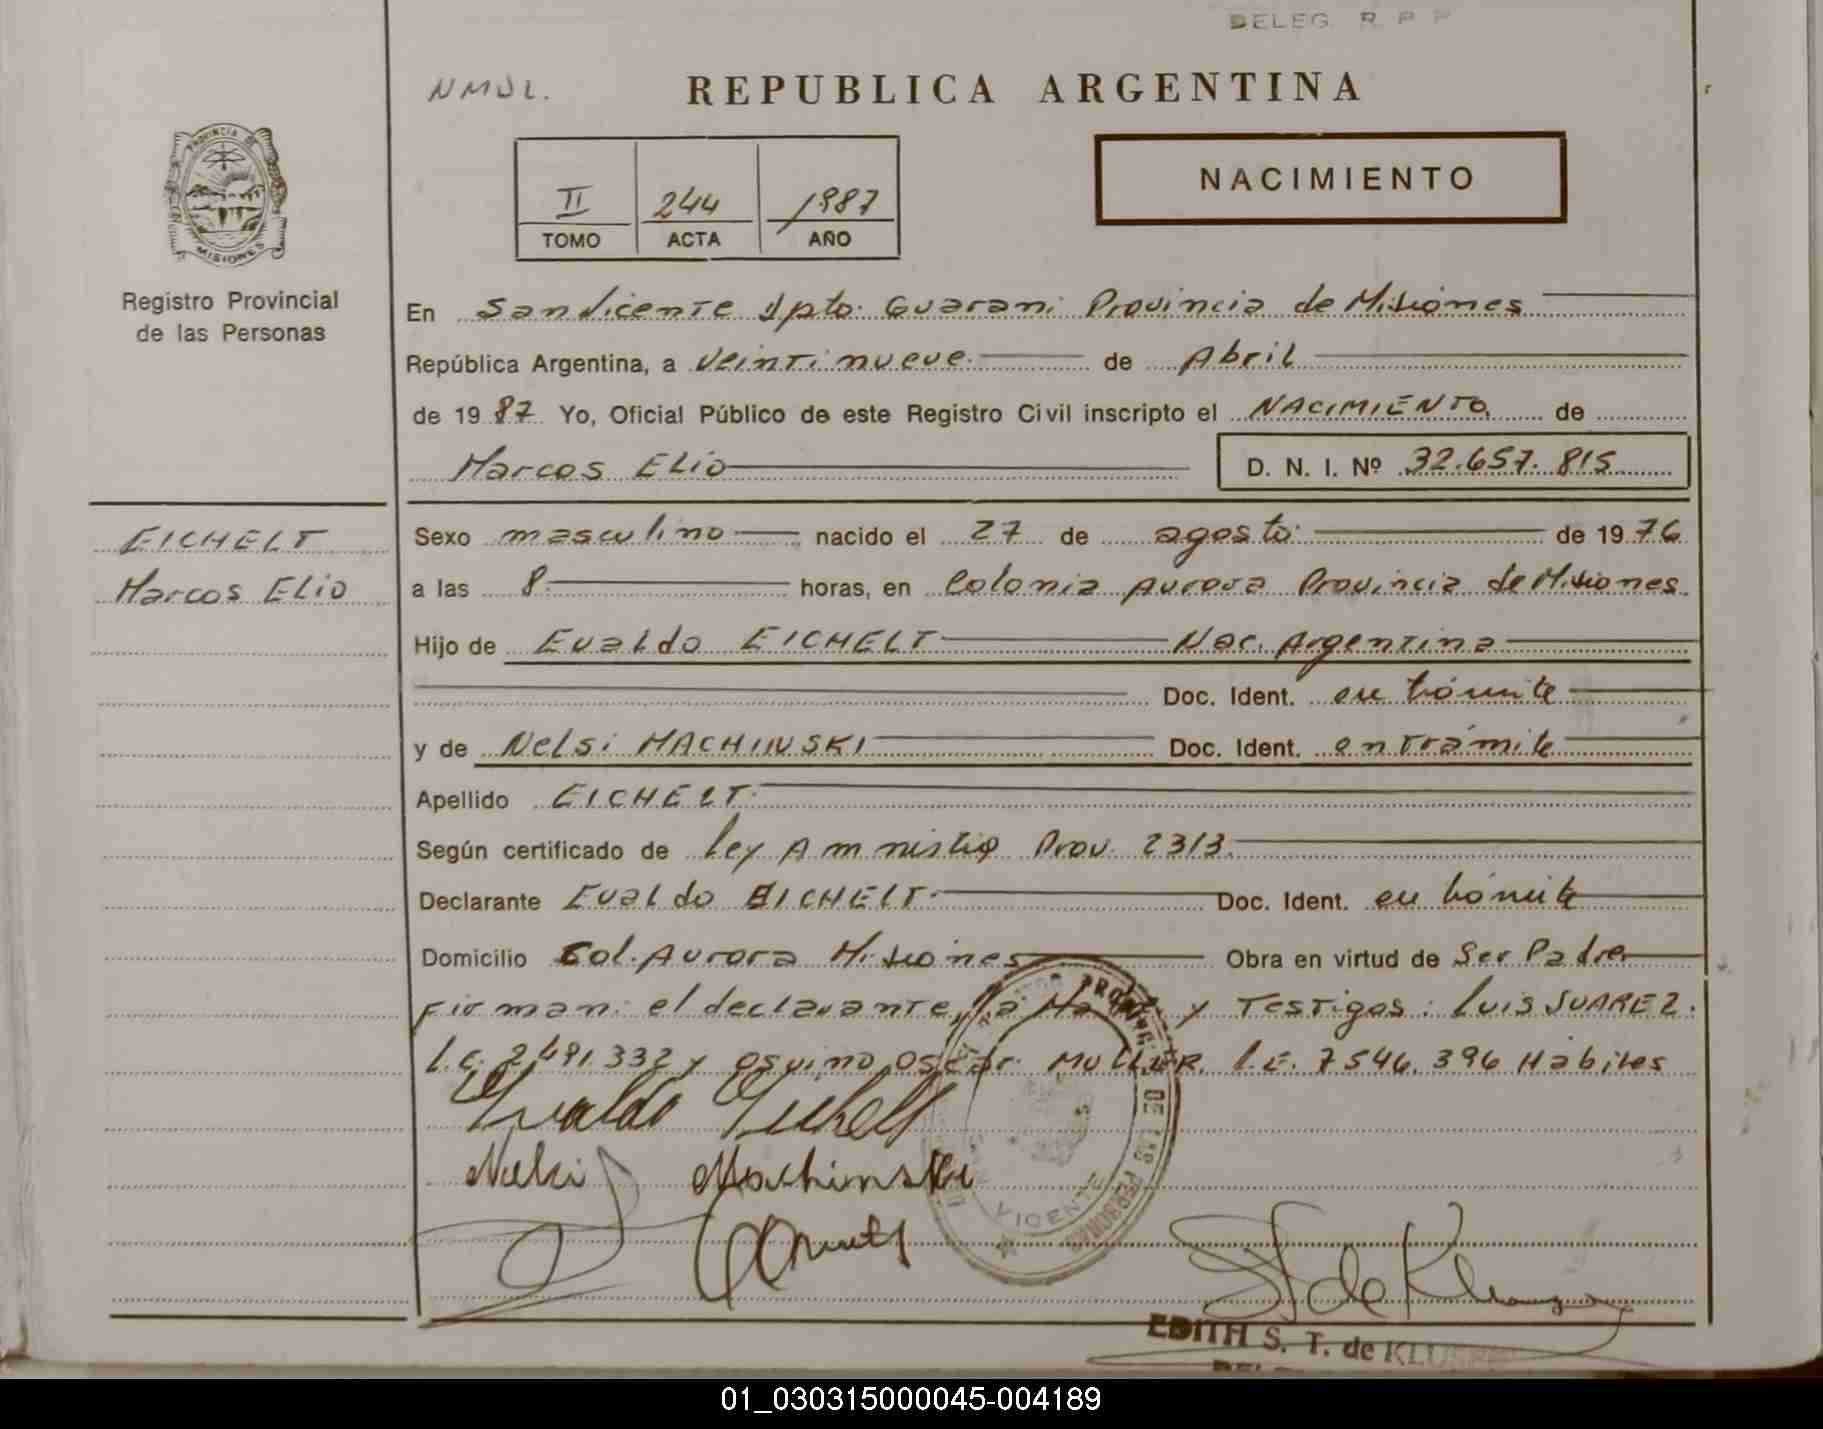 DELEG. R. P. P.
NMDL.
REPUBLICA ARGENTINA
PROVINCIA DE
MISIONES
Registro Provincial
de las Personas
II 244 1987
TOMO ACTA AÑO
NACIMIENTO
En San Vicente Dpto. Guarani Provincia de Misiones
República Argentina, a Veintinueve de Abril
de 1987 Yo, Oficial Público de este Registro Civil inscripto el NACIMIENTO de
Marcos Elio D. N. I. Nº 32.657.815
EICHELT
Marcos Elio
Sexo masculino nacido el 27 de agosto de 1976
a las 8 horas, en Colonia Aurora Provincia de Misiones
Hijo de Evaldo EICHELT Nac. Argentina
Doc. Ident. en trámite
y de Nelsi MACHINSKI Doc. Ident. en trámite
Apellido EICHELT
Según certificado de Ley Amnistia Prov. 2313
Declarante Evaldo EICHELT Doc. Ident. en trámite
Domicilio Col. Aurora Misiones Obra en virtud de Ser Padre
Firman: el declarante, la Madre y Testigos: Luis SUAREZ.
L.E. 2491.332 y Osvino Oscar MULLER L.E. 7546.396 Hábiles
Evaldo Eichelt
Nelsi Machinski
DE LAS PERSONAS
VICENTE
S T de Klusener
EDITH S. T. de KLUSENER
01_030315000045-004189